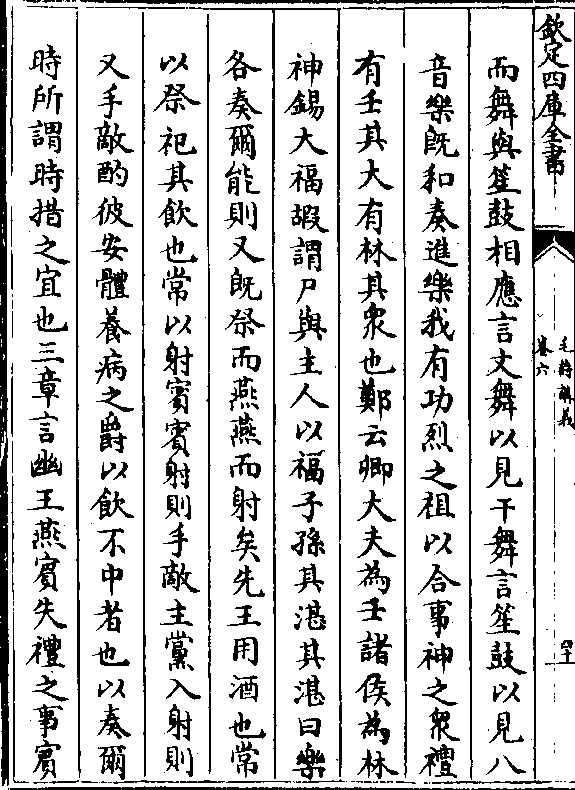 欽定四庫全書
毛詩講義
卷六
四十
而舞與笙鼓相應言文舞以見干舞言笙鼓以見八
音樂既和奏進樂我有功烈之祖以合事神之衆禮
有壬其大有林其衆也鄭云卿大夫為壬諸侯為林
神錫大福嘏謂尸與主人以福子孫其湛其湛曰樂
各奏爾能則又既祭而燕燕而射矣先王用酒也常
以祭祀其飲也常以射賓賓射則手敵主黨入射則
又手敵酌彼安體養病之爵以飲不中者也以奏爾
時所謂時措之宜也三章言幽王燕賓失禮之事賓